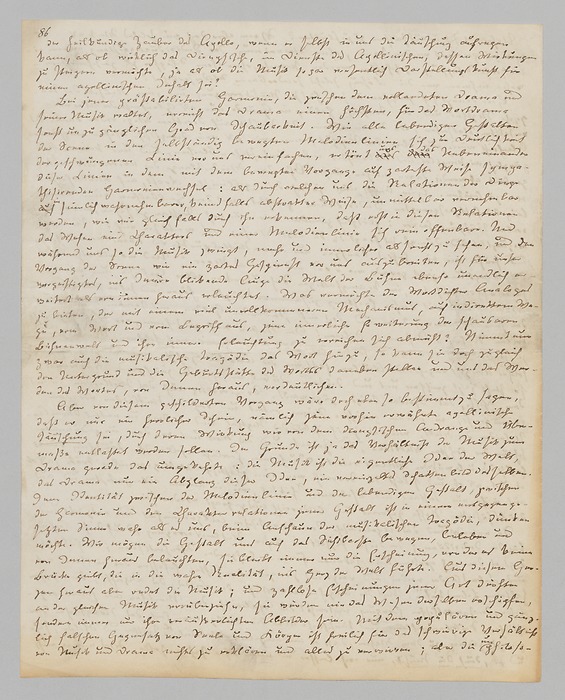 86
der heilkundige Zauber des Apollo, wenn er selbst in uns die Täuschung aufregen
kann, als ob wirklich das Dionysische, im Dienste des Apollinischen, dessen Wirkungen
zu steigern vermöchte, ja als ob die Musik sogar wesentlich Darstellungskunst für
einen apollinischen Inhalt sei?
Bei jener prästabilirten Harmonie, die zwischen dem vollendeten Drama und
seiner Musik waltet, erreicht das Drama einen höchsten, für das Wortdrama
sonst unzugänglichen Grad von Schaubarkeit. Wie alle lebendigen Gestalten
der Scene in den selbständig bewegten Melodienlinien sich zur Deutlichkeit
der geschwungenen Linie vor uns vereinfachen, ertönt uns das Nebeneinander
dieser Linien in dem mit dem bewegten Vorgange auf zarteste Weise sympa-
thisirenden Harmonienwechsel: als durch welchen uns die Relationen der Dinge
auf sinnlich wahrnehmbare, keinesfalls abstrakter Weise, unmittelbar vernehmbar
werden, wie wir gleichfalls durch ihn erkennen, daß erst in diesen Relationen
das Wesen eines Charakters und einer Melodienlinie sich rein offenbare. Und
während uns so die Musik zwingt, mehr und innerlicher als sonst zu sehen, und den
Vorgang der Scene wie ein zartes Gespinnst vor uns auszubreiten, ist für unser
vergeistigtes, ins Innere blickendes Auge die Welt der Bühne ebenso unendlich er-
weitert als von innen heraus erleuchtet. Was vermöchte der Wortdichter Analoges
zu bieten, der mit einem viel unvollkommneren Mechanismus, auf indirektem We-
ge, vom Wort und vom Begriff aus, jene innerliche Erweiterung der schaubaren
Bühnenwelt und ihre innere Erleuchtung zu erreichen sich abmüht? Nimmt nun
zwar auch die musikalische Tragödie das Wort hinzu, so kann sie doch zugleich
den Untergrund und die Geburtsstätte des Wortes daneben stellen und uns das Wer-
den des Wortes, von innen heraus, verdeutlichen.
Aber von diesem geschilderten Vorgang wäre doch eben so bestimmt zu sagen,
daß er nur ein herrlicher Schein, nämlich jene vorhin erwähnte apollinische
Täuschung sei, durch deren Wirkung wir von dem dionysischen Andrange und Über-
maße entlastet werden sollen. Im Grunde ist ja das Verhältniß der Musik zum
Drama gerade das umgekehrte: die Musik ist die eigentliche Idee der Welt,
das Drama nur ein Abglanz dieser Idee, ein vereinzeltes Schattenbild derselben.
Jene Identität zwischen der Melodienlinie und der lebendigen Gestalt, zwischen
der Harmonie und den Charakterrelationen jener Gestalt ist in einem entgegenge-
setzten Sinne wahr als es uns, beim Anschauen der musikalischen Tragödie, dünken
möchte. Wir mögen die Gestalt uns auf das Sichtbarste bewegen, beleben und
von innen heraus beleuchten, sie bleibt immer nur die Erscheinung, von der es keine
Brücke giebt, die in die wahre Realität, ins Herz der Welt führte. Aus diesem Her-
zen heraus aber redet die Musik; und zahllose Erscheinungen jener Art dürften
an der gleichen Musik vorüberziehn, sie würden nie das Wesen derselben erschöpfen,
sondern immer nur ihre veräusserlichten Abbilder sein. Mit dem populären und gänz-
lich falschen Gegensatz von Seele und Körper ist freilich für das schwierige Verhältniß
von Musik und Drama nichts zu erklären und alles zu verwirren; aber die unphiloso-